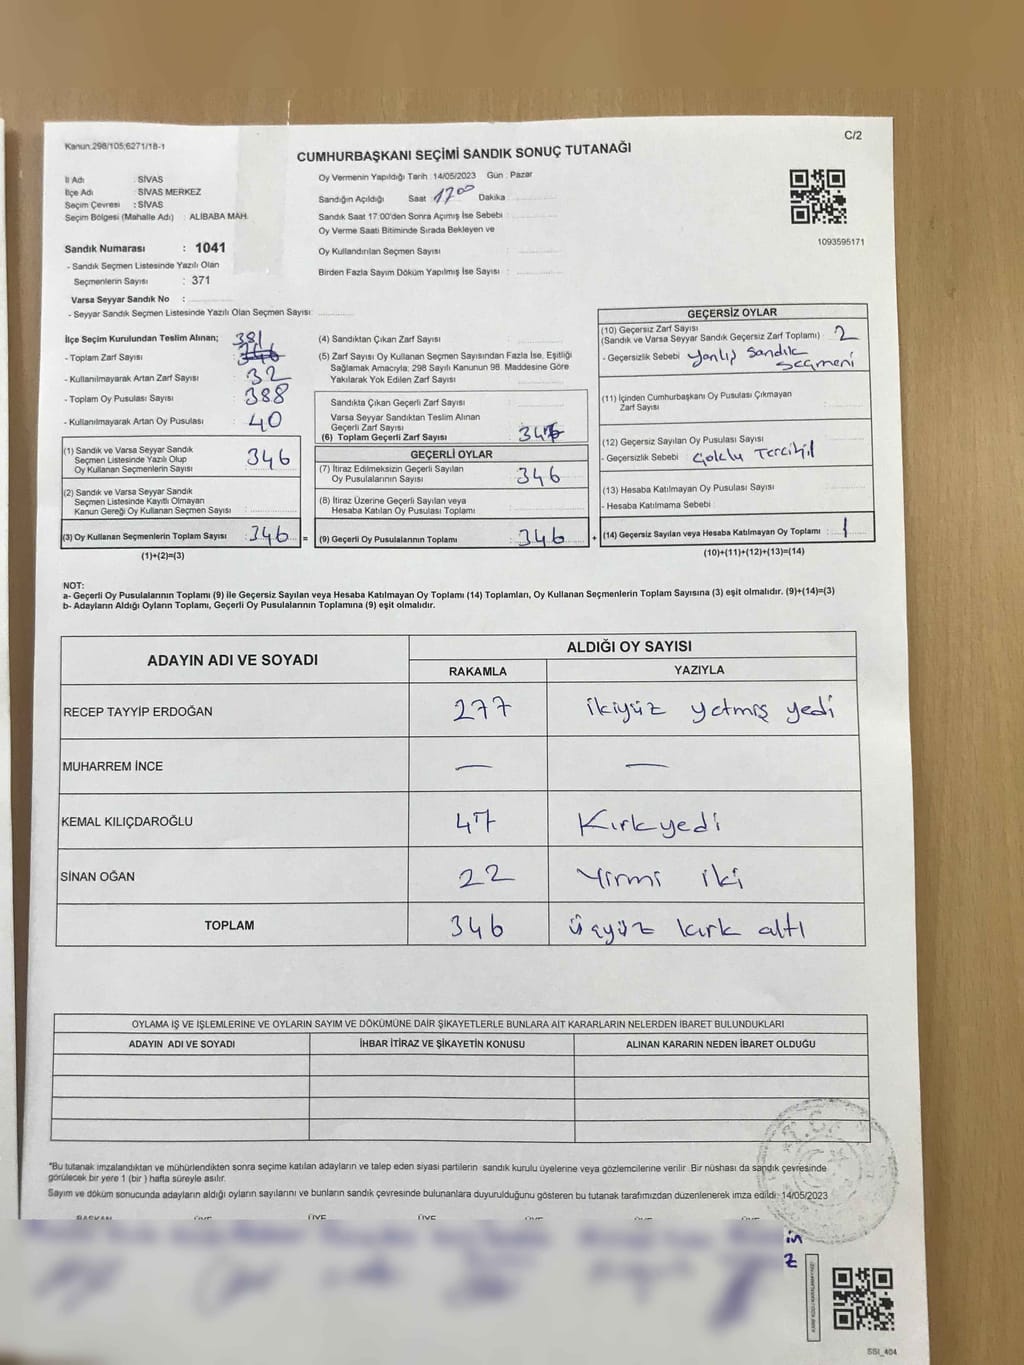 Kanun:298/105;6271/18-1
C/2
CUMHURBAŞKANI SEÇİMİ SANDIK SONUÇ TUTANAĞI
İl Adı : SİVAS
İlçe Adı : SİVAS MERKEZ
Seçim Çevresi : SİVAS
Seçim Bölgesi (Mahalle Adı) : ALİBABA MAH.
Sandık Numarası : 1041
- Sandık Seçmen Listesinde Yazılı Olan
Seçmenlerin Sayısı : 371
Varsa Seyyar Sandık No :
- Seyyar Sandık Seçmen Listesinde Yazılı Olan Seçmen Sayısı:
Oy Vermenin Yapıldığı Tarih :14/05/2023 Gün : Pazar
Sandığın Açıldığı Saat 17:00 Dakika
Sandık Saat 17:00'den Sonra Açımış İse Sebebi :
Oy Verme Saati Bitiminde Sırada Bekleyen ve
Oy Kullandırılan Seçmen Sayısı :
Birden Fazla Sayım Döküm Yapılmış İse Sayısı :
1093595171
İlçe Seçim Kurulundan Teslim Alınan; 381
- Toplam Zarf Sayısı : 346
- Kullanılmayarak Artan Zarf Sayısı : 32
- Toplam Oy Pusulası Sayısı : 388
- Kullanılmayarak Artan Oy Pusulası : 40
(1) Sandık ve Varsa Seyyar Sandık
Seçmen Listesinde Yazılı Olup
Oy Kullanan Seçmenlerin Sayısı : 346
(2) Sandık ve Varsa Seyyar Sandık
Seçmen Listesinde Kayıtlı Olmayan
Kanun Gereği Oy Kullanan Seçmen Sayısı :
(3) Oy Kullanan Seçmenlerin Toplam Sayısı : 346 =
(1)+(2)=(3)
(4) Sandıktan Çıkan Zarf Sayısı :
(5) Zarf Sayısı Oy Kullanan Seçmen Sayısından Fazla İse, Eşitliği
Sağlamak Amacıyla; 298 Sayılı Kanunun 98. Maddesine Göre
Yakılarak Yok Edilen Zarf Sayısı :
Sandıkta Çıkan Geçerli Zarf Sayısı :
Varsa Seyyar Sandıktan Teslim Alınan
Geçerli Zarf Sayısı :
(6) Toplam Geçerli Zarf Sayısı : 346
GEÇERLİ OYLAR
(7) İtiraz Edilmeksizin Geçerli Sayılan
Oy Pusulalarının Sayısı : 346
(8) İtiraz Üzerine Geçerli Sayılan veya
Hesaba Katılan Oy Pusulası Toplamı :
(9) Geçerli Oy Pusulalarının Toplamı : 346 +
GEÇERSİZ OYLAR
(10) Geçersiz Zarf Sayısı
(Sandık ve Varsa Seyyar Sandık Geçersiz Zarf Toplamı) : 2
- Geçersizlik Sebebi : yanlış Sandık
Seçmeni
(11) İçinden Cumhurbaşkanı Oy Pusulası Çıkmayan
Zarf Sayısı :
(12) Geçersiz Sayılan Oy Pusulası Sayısı :
- Geçersizlik Sebebi : Çoklu Tercihil
(13) Hesaba Katılmayan Oy Pusulası Sayısı :
- Hesaba Katılmama Sebebi :
(14) Geçersiz Sayılan veya Hesaba Katılmayan Oy Toplamı : 1
(10)+(11)+(12)+(13)=(14)
NOT:
a- Geçerli Oy Pusulalarının Toplamı (9) ile Geçersiz Sayılan veya Hesaba Katılmayan Oy Toplamı (14) Toplamları, Oy Kullanan Seçmenlerin Toplam Sayısına (3) eşit olmalıdır. (9)+(14)=(3)
b- Adayların Aldığı Oyların Toplamı, Geçerli Oy Pusulalarının Toplamına (9) eşit olmalıdır.
ADAYIN ADI VE SOYADI
ALDIĞI OY SAYISI
RAKAMLA YAZIYLA
RECEP TAYYİP ERDOĞAN 277 ikiyüz yetmiş yedi
MUHARREM İNCE — —
KEMAL KILIÇDAROĞLU 47 Kırkyedi
SİNAN OĞAN 22 Yirmi iki
TOPLAM 346 üçyüz kırk altı
OYLAMA İŞ VE İŞLEMLERİNE VE OYLARIN SAYIM VE DÖKÜMÜNE DAİR ŞİKAYETLERLE BUNLARA AİT KARARLARIN NELERDEN İBARET BULUNDUKLARI
ADAYIN ADI VE SOYADI İHBAR İTİRAZ VE ŞİKAYETİN KONUSU ALINAN KARARIN NEDEN İBARET OLDUĞU
*Bu tutanak imzalandıktan ve mühürlendikten sonra seçime katılan adayların ve talep eden siyasi partilerin sandık kurulu üyelerine veya gözlemcilerine verilir. Bir nüshası da sandık çevresinde
görülecek bir yere 1 (bir ) hafta süreyle asılır.
Sayım ve döküm sonucunda adayların aldığı oyların sayılarını ve bunların sandık çevresinde bulunanlara duyurulduğunu gösteren bu tutanak tarafımızdan düzenlenerek imza edildi. 14/05/2023
BAŞKAN ÜYE ÜYE ÜYE ÜYE ÜYE ÜYE
T.C.
SSI_404